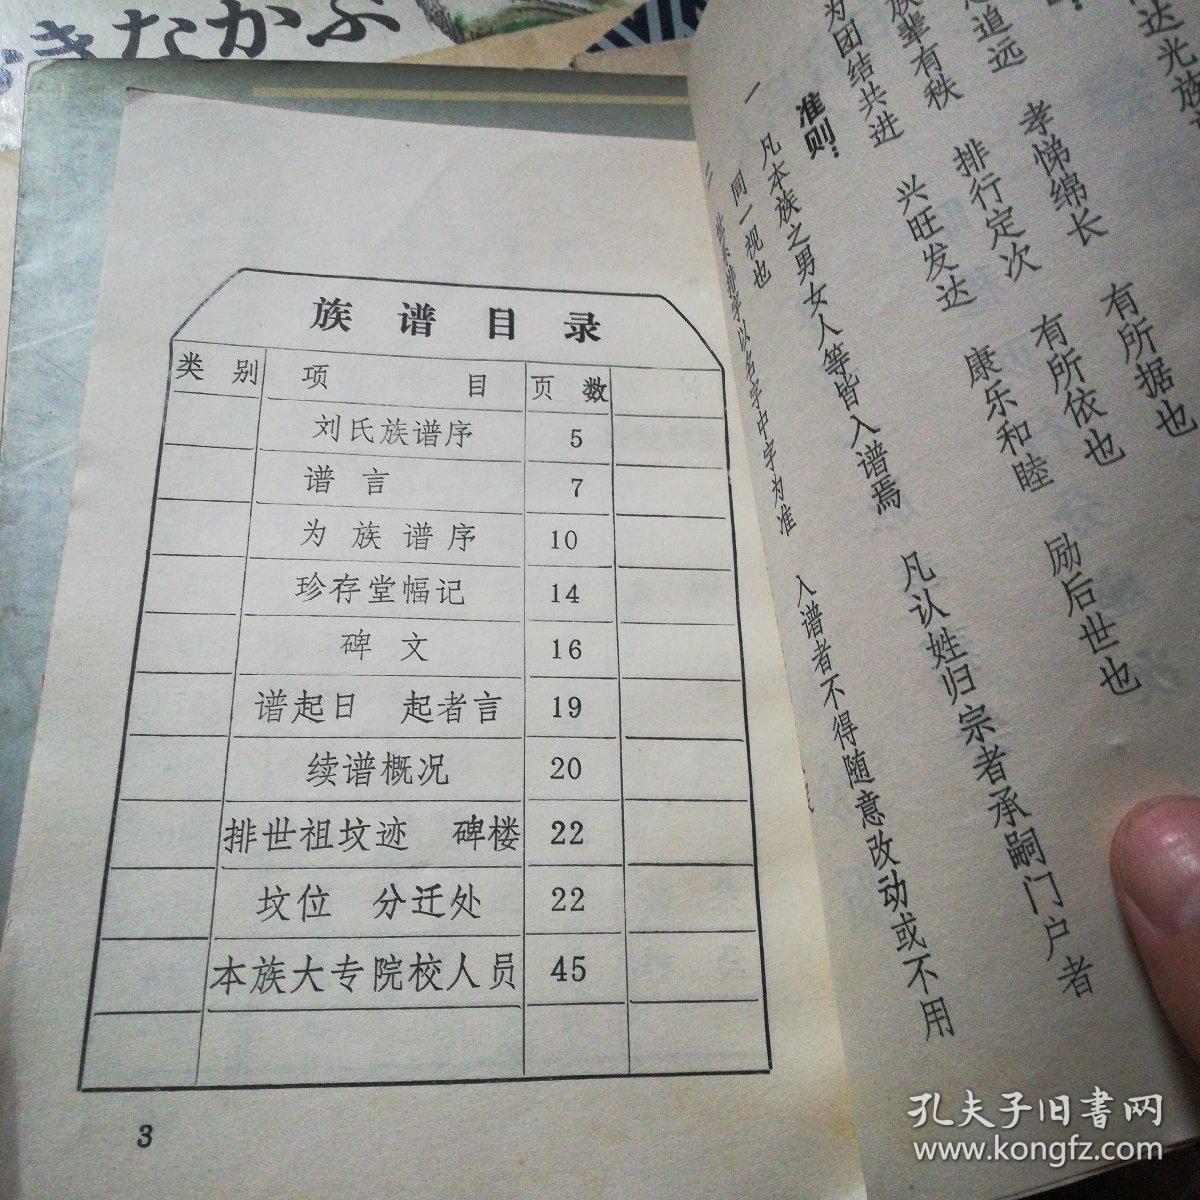 なかぶ
族谱目录
类别 项目 页数
刘氏族谱序 5
谱言 7
为族谱序 10
珍存堂幅记 14
碑文 16
谱起日 起者言 19
续谱概况 20
排世祖坟迹 碑楼 22
坟位 分迁处 22
本族大专院校人员 45
3
达光族
追远 孝悌绵长 有所据也
族辈有秩 排行定次 有所依也 励后世也
为团结共进 兴旺发达 康乐和睦
准则:
一 凡本族之男女人等皆入谱焉 凡认姓归宗者承嗣门户者
同一视也
二 排字以名字中字为准 入谱者不得随意改动或不用
孔夫子旧书网
www.kongfz.com